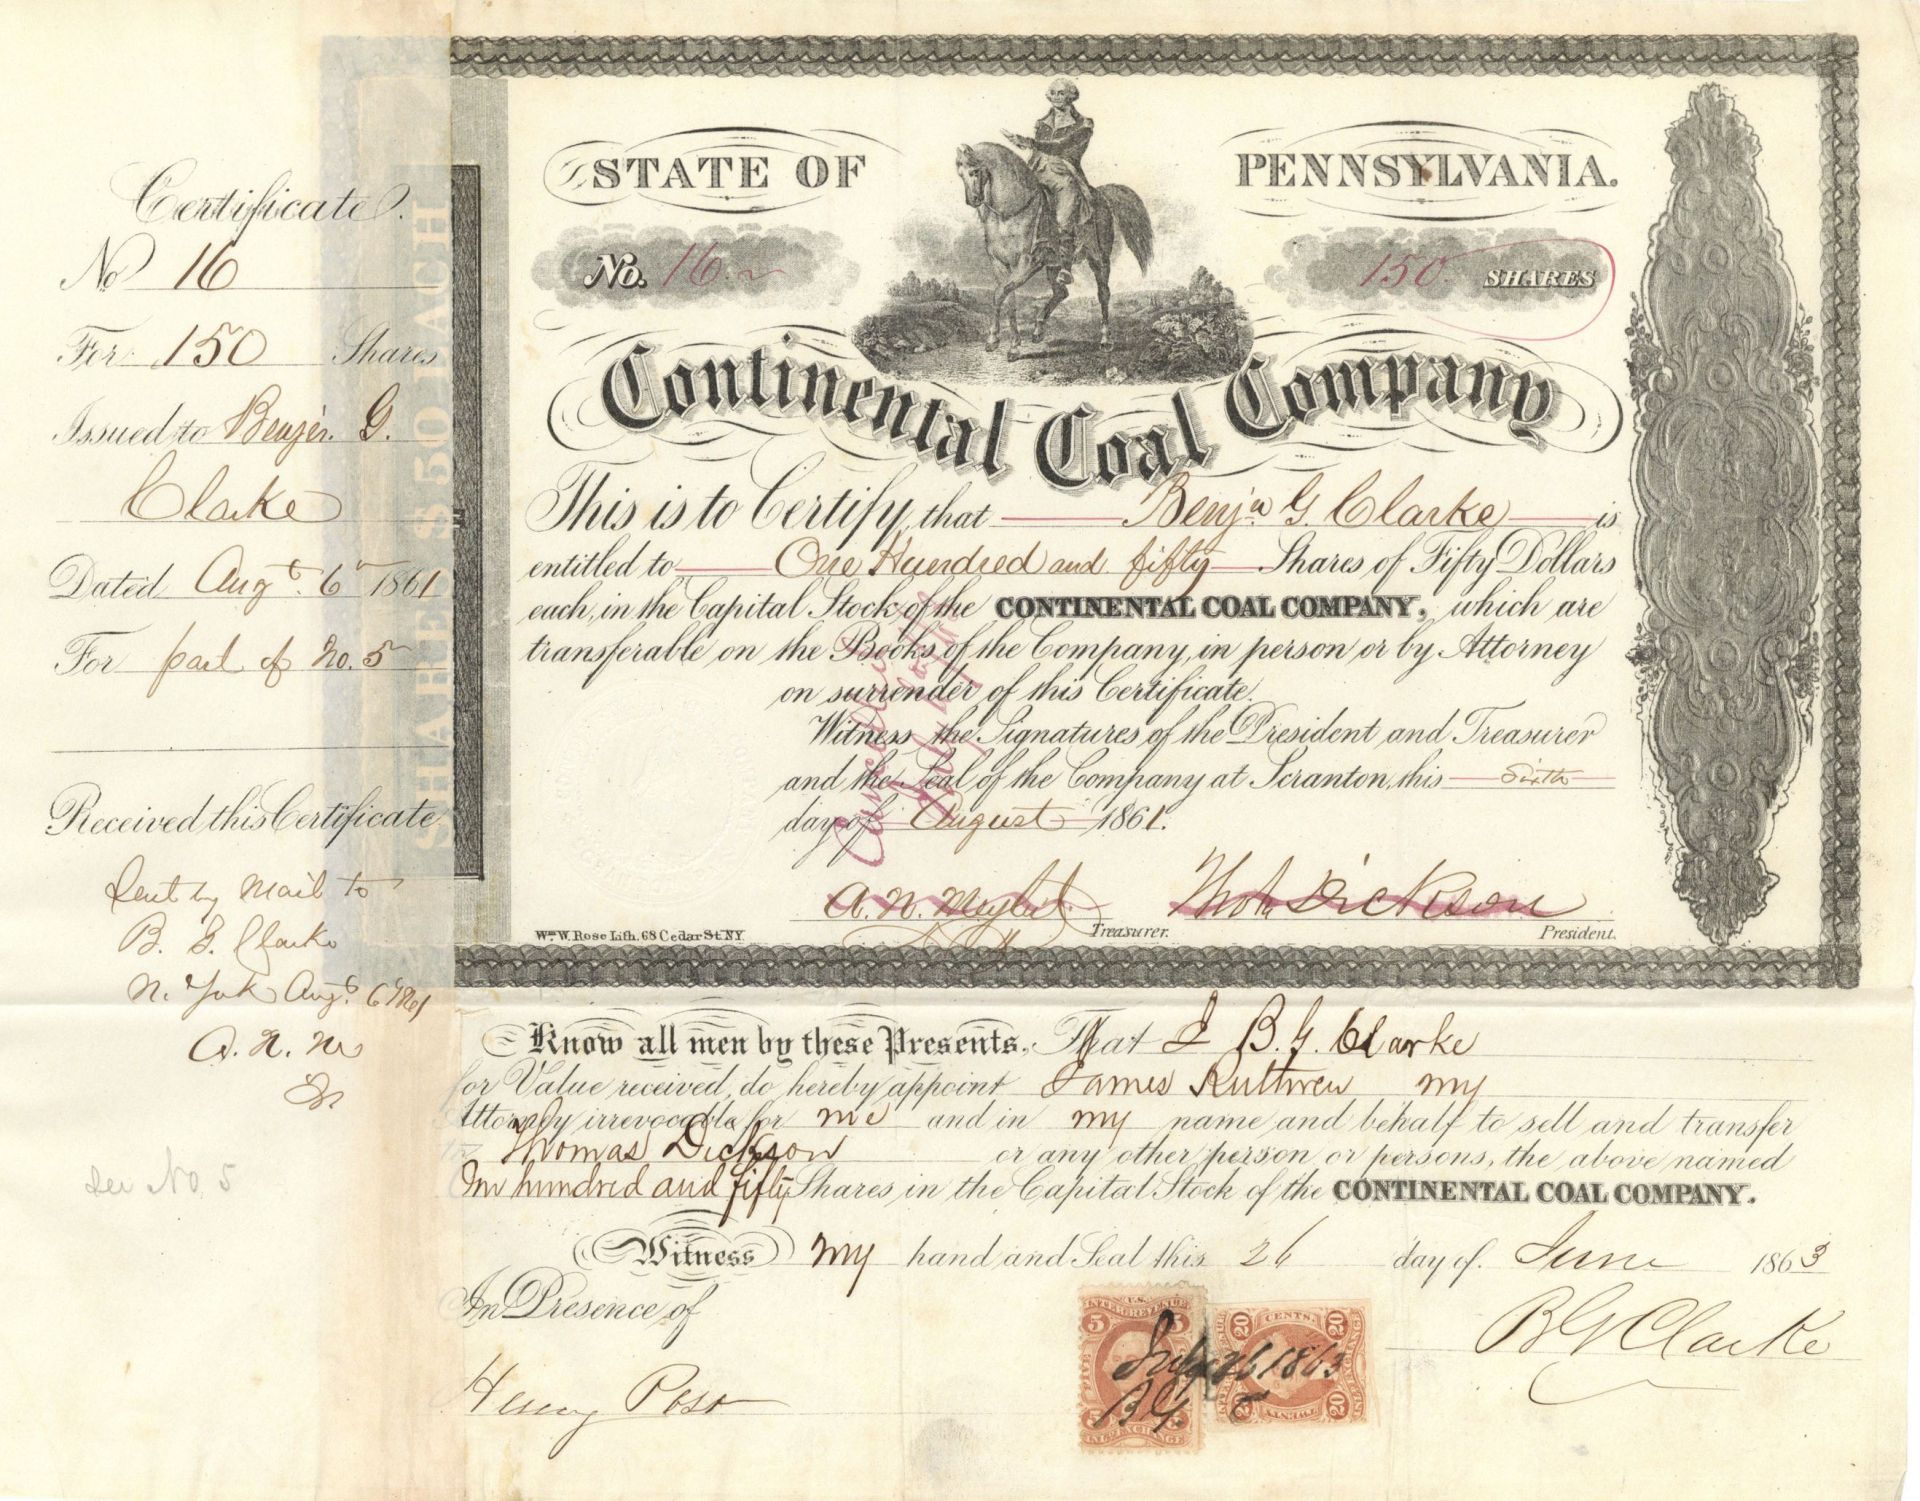 Certificate.
No 16
For 150 Shares
Issued to Benja. G.
Clarke
Dated Augt. 6th 1861
For part of No. 5
Received this Certificate
Sent by Mail to
B. G. Clarke
N. York Augt. 6 1861
A. N. M
See No 5
SHARES $50 EACH
STATE OF PENNSYLVANIA.
No. 16. 150 SHARES
Continental Coal Company
This is to Certify, that Benja G. Clarke is
entitled to One Hundred and fifty Shares of Fifty Dollars
each, in the Capital Stock of the CONTINENTAL COAL COMPANY, which are
transferable on the Books of the Company, in person or by Attorney
on surrender of this Certificate.
Witness the Signatures of the President and Treasurer
and the Seal of the Company at Scranton, this Sixth
day of August 1861.
Cancelled
Thos. Dickson
Treasurer. President.
Wm. W. Rose Lith. 68 Cedar St. NY.
Know all men by these Presents, That I B. G. Clarke
for Value received, do hereby appoint James Ruthven my
Attorney irrevocable for me and in my name and behalf to sell and transfer
to Thomas Dickson or any other person or persons, the above named
One hundred and fifty Shares in the Capital Stock of the CONTINENTAL COAL COMPANY.
Witness my hand and Seal this 26 day of June 1863
In Presence of
B G Clarke
Henry
U.S.
INTER. REVENUE
5 5
FIVE
5 5
INL. EXCHANGE
20 CENTS. 20
20 TWENTY 20
26 1863
B. G. C